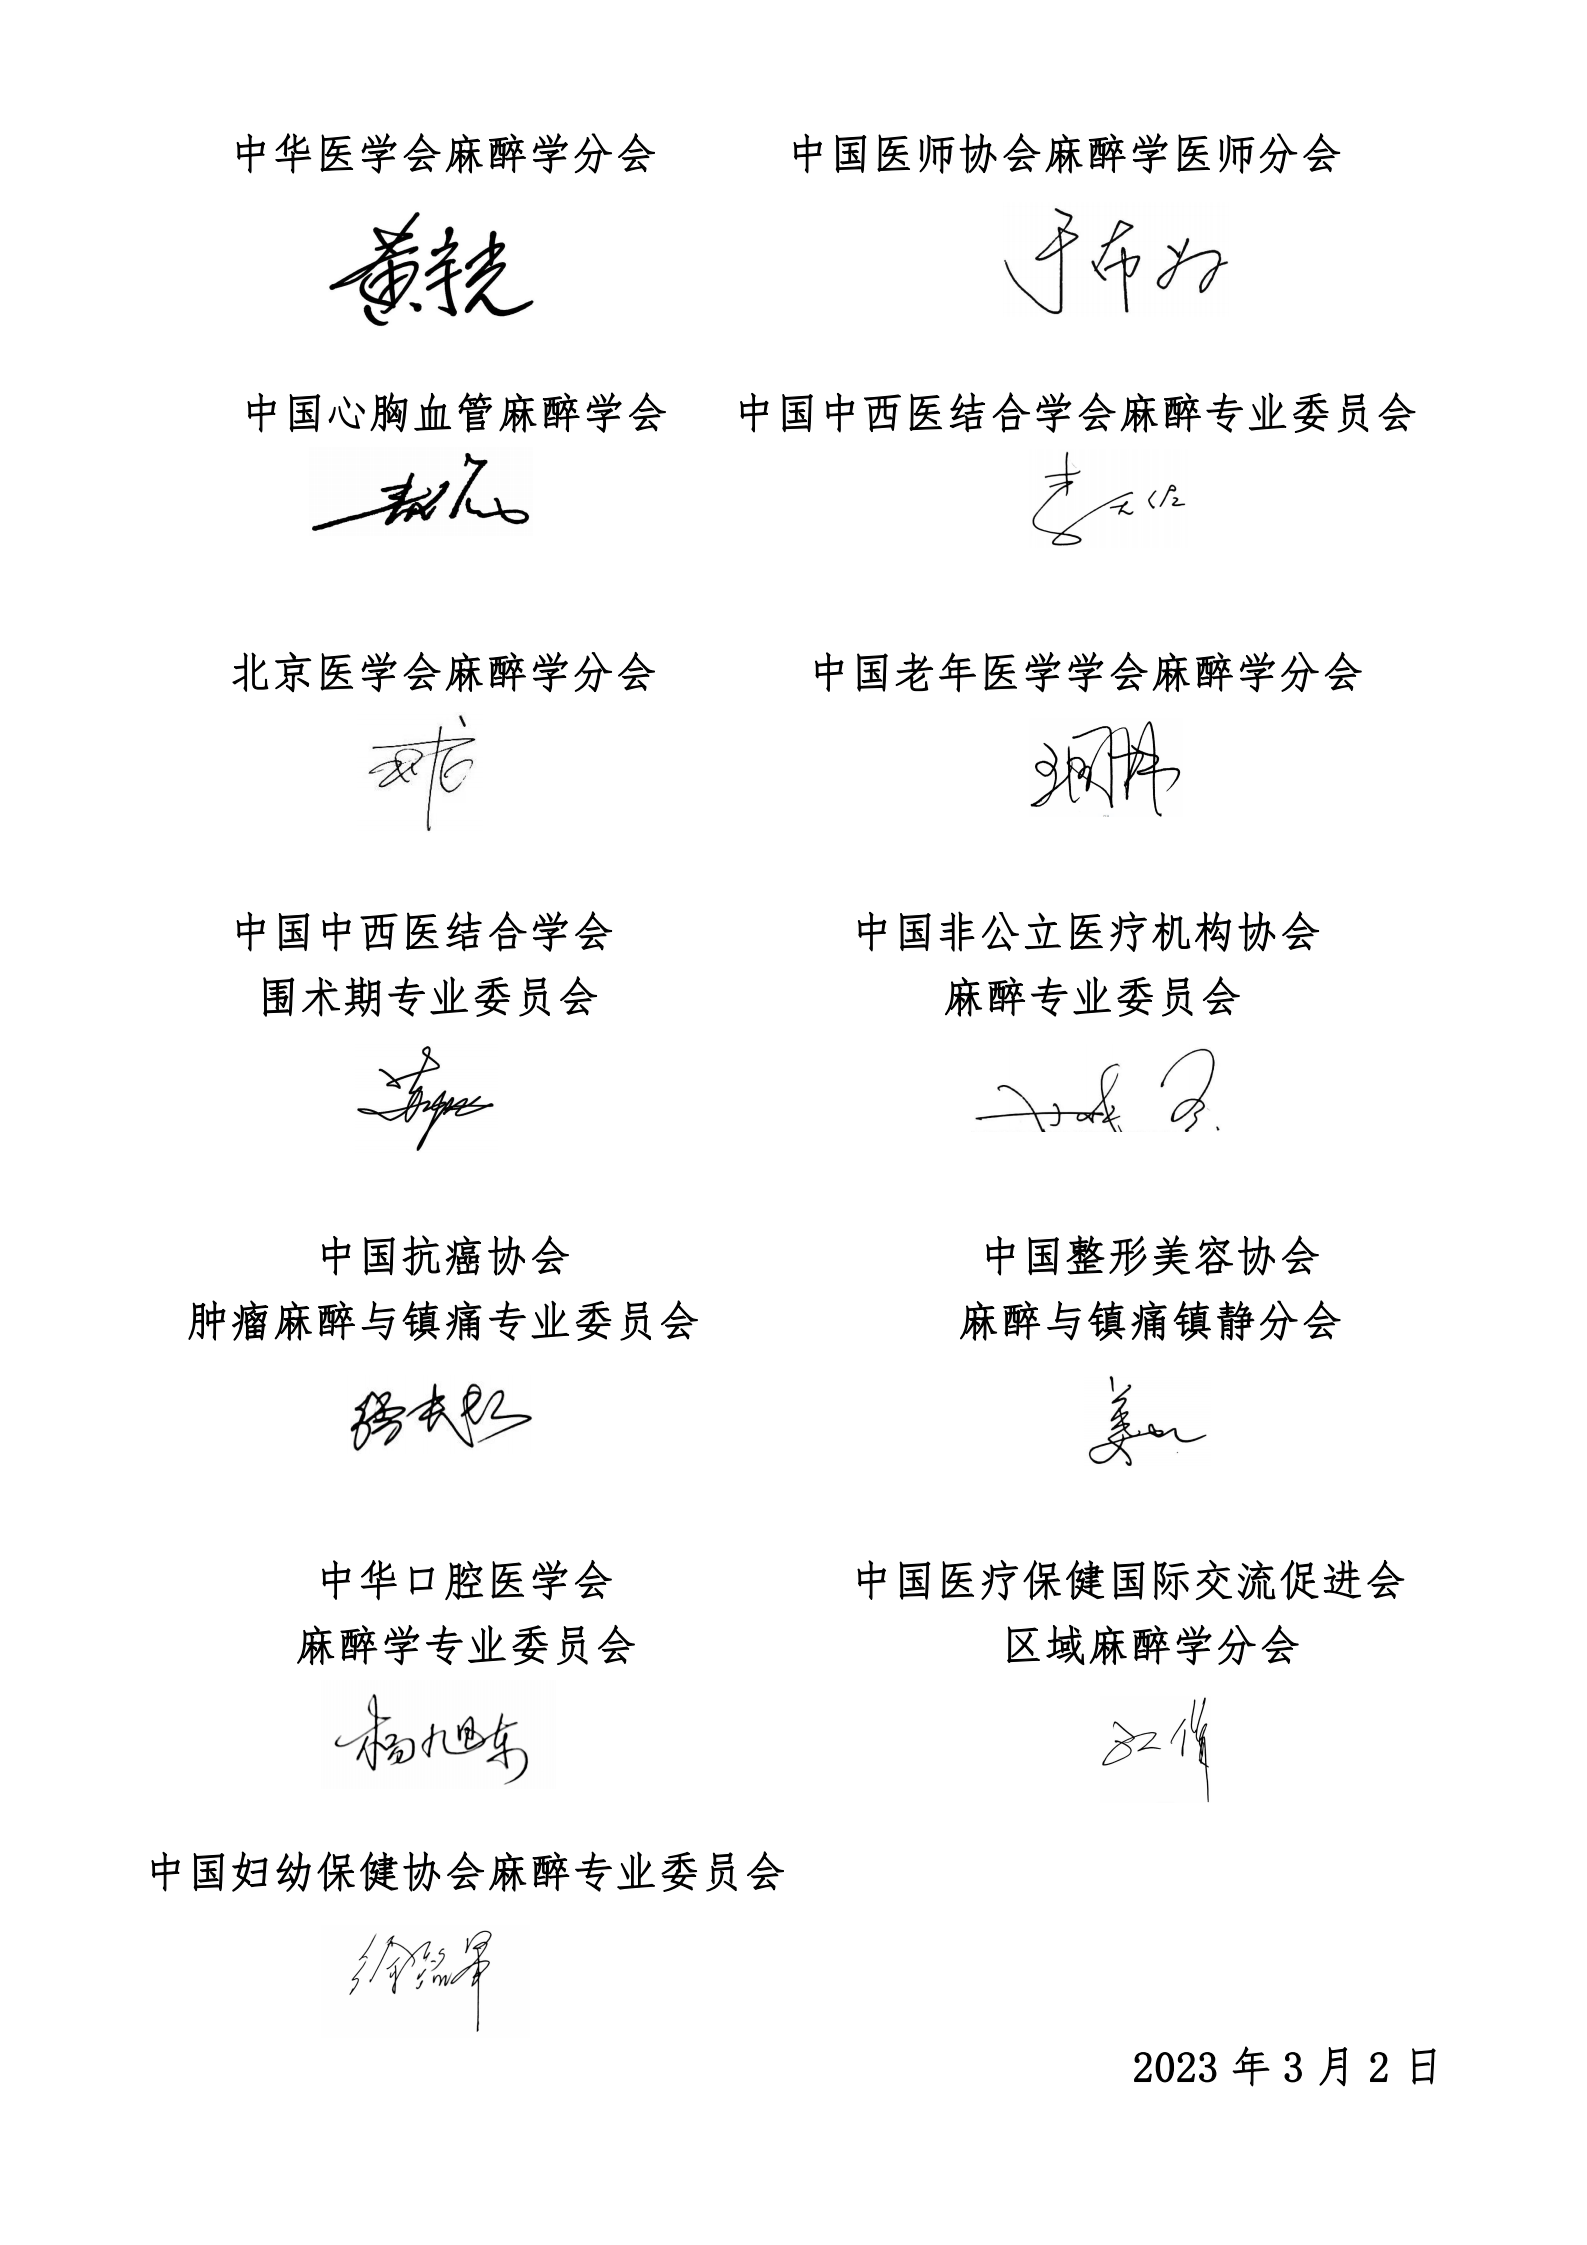 中华医学会麻醉学分会
中国医师协会麻醉学医师分会
黄宇光
于布为
中国心胸血管麻醉学会
中国中西医结合学会麻醉专业委员会
李天佐
北京医学会麻醉学分会
中国老年医学学会麻醉学分会
中国中西医结合学会
围术期专业委员会
中国非公立医疗机构协会
麻醉专业委员会
中国抗癌协会
肿瘤麻醉与镇痛专业委员会
中国整形美容协会
麻醉与镇痛镇静分会
中华口腔医学会
麻醉学专业委员会
中国医疗保健国际交流促进会
区域麻醉学分会
杨旭东
中国妇幼保健协会麻醉专业委员会
徐铭军
2023 年 3 月 2 日